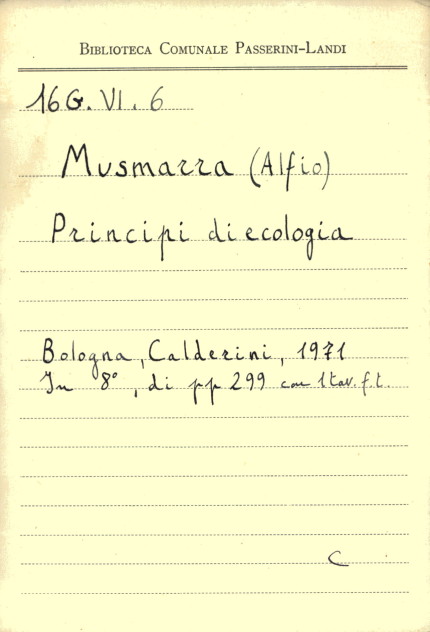 BIBLIOTECA COMUNALE PASSERINI-LANDI
16G. VI. 6
Musmarra (Alfio)
Principi di ecologia
Bologna, Calderini, 1971
In 8°, di pp 299 con 1 tav. f.t.
C